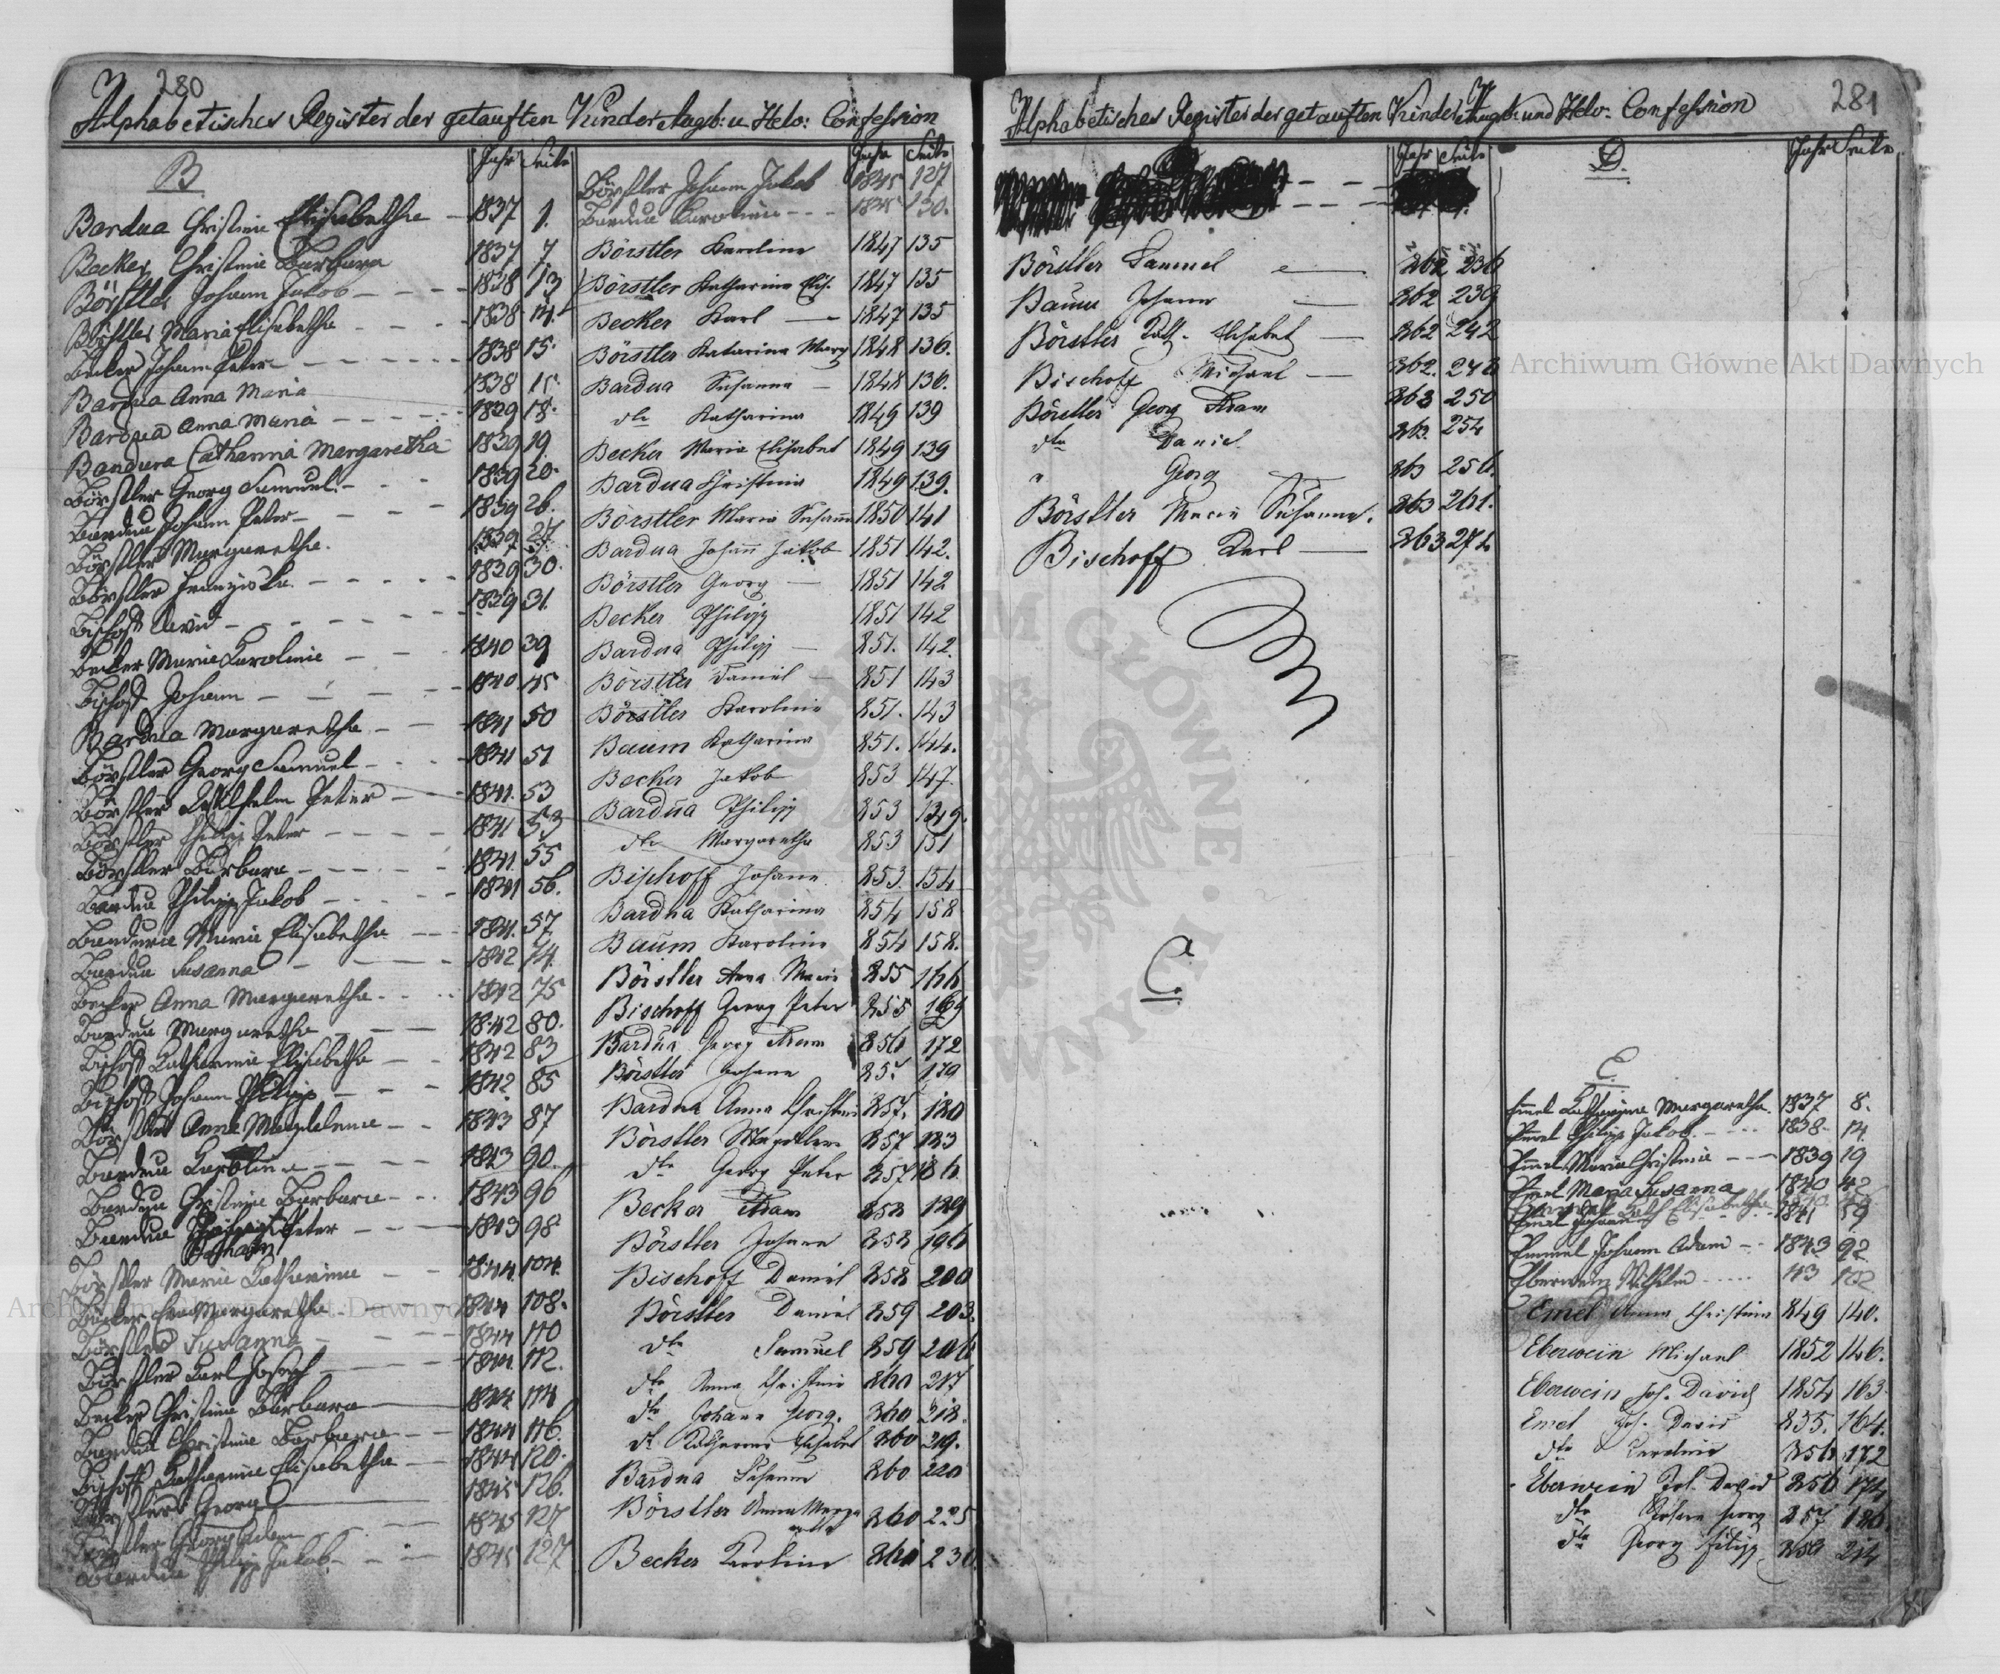 280
Alphabetisches Register der getauften Kinder Augsb: u Helv: Confession
B
Jahr Seite
Bardua Christine Elisabetha 1837 1.
Becker Christine Barbara 1837 7
Börstler Johann Jakob 1838 13
Börstler Maria Elisabetha 1838 14.
Becker Johann Peter 1838 15.
Bardua Anna Maria 1838 15.
Bardua Anna Maria 1839 18.
Bandura Catharina Margaretha 1839 19.
Börstler Georg Samuel 1839 20.
Bardua Johann Peter 1839 26.
Börstler Margaretha. 1839 27.
Börstler Franziska 1839 30.
Bischoff David 1839 31.
Becker Maria Karolinie 1840 39
Bischoff Johann 1840 45
Bardua Margaretha 1841 50
Börstler Georg Samuel 1841 51
Börstler Wilhelm Peter 1841. 53
Börstler Philipp Peter 1841 53
Börstler Barbara 1841. 55
Bardua Philipp Jakob 1841 56.
Bandura Maria Elisabetha 1841. 57
Bardua Susanna 1842 74.
Becker Anna Margaretha 1842 75
Bardua Margaretha 1842 80.
Bischoff Katharina Elisabetha 1842 83
Bischoff Johann Philipp 1842. 85
Börstler Anna Magdalena 1843 87
Bardua Karolina 1843 90.
Bardua Christine Barbara 1843 96
Bardua Peter 1843 98
Johann
Börstler Maria Katharina 1844 104.
Becker Eva Margaretha 1844 108.
Börstler Susanna 1844 110
Börstler Karl Joseph 1844. 112.
Becker Christine Barbara 1844 114
Bardua Christine Barbara 1844 116.
Bischoff Katharina Elisabetha 1844 120.
Börstler Georg 1845 126.
Börstler Georg Adam 1845 127
Bardua Philipp Jakob 1845 127.
Jahr Seite
Börstler Johann Jakob 1845 127
Bardua Karolina 1845 130.
Börstler Karolina 1847 135
Börstler Katharina Elis. 1847 135
Becker Karl 1847 135
Börstler Katarina Marg 1848 136.
Bardua Susanna 1848 136.
dto Katharina 1849 139
Becker Maria Elisabet 1849 139
Bardua Christina 1849 139.
Börstler Maria Susanna 1850 141
Bardua Johann Jakob 1851 142.
Börstler Georg 1851 142
Becker Philipp 1851 142
Bardua Philipp 851. 142.
Börstler Daniel 851 143
Börstler Karolina 851. 143
Baum Katharina 851. 144.
Becker Jakob 853 147.
Bardua Philipp 853 149.
dto Margaretha 853 151
Bischoff Johann 853. 154
Bardua Katharina 854 158
Baum Karolina 854 158.
Börstler Anna Maria 855 166
Bischoff Georg Peter 855 169
Bardua Georg Adam 856 172
Börstler Johann 857 179
Bardua Anna Christina 857. 180
Börstler Magdalena 857 183
dto Georg Peter 857 186.
Becker Adam 858 189
Börstler Johann 858 196
Bischoff Daniel 858 200
Börstler Daniel 859 203.
dto Samuel 859 206
dto Anna Christine 860 217
dto Johann Georg. 860 218.
dto Katharina Elisabet 860 219.
Bardua Johann 860 220
Börstler Anna Marga 860 225
retta
Becker Karolina 860 230.
281
Alphabetisches Register der getauften Kinder Augsb: und Helv: Confession
Jahr Seite
Börstler Samuel 862 236
Baum Johann 862 239
Börstler Kath. Elisabet 862 242
Bischoff Michael 862. 243
Börstler Georg Adam 863 250
dto Daniel 863. 254
" Georg 863 256.
Börstler Maria Susanna. 863 261.
Bischoff Karl 863 274
C.
D.
Jahr Seite
E.
Emel Katharina Margaretha. 1837 8.
Emel Philipp Jakob 1838 14.
Emel Maria Christina 1839 19
Emel Maria Susanna 1840 42
Emel Johann 1841 59
Emmel Johann Adam 1843 92
Eberwein Wilhelm 43 102
Emel Anna Christina 849 140.
Eberwein Michael 1852 146.
Eberwein Joh. David 1854 163
Emel Joh. David 855. 164.
dto Karolina 856 172
Eberwein Joh. David 856 174
dto Johann Georg 857 186
dto Georg Philipp 859 214
Archiwum Główne Akt Dawnych
Archiwum Główne Akt Dawnych